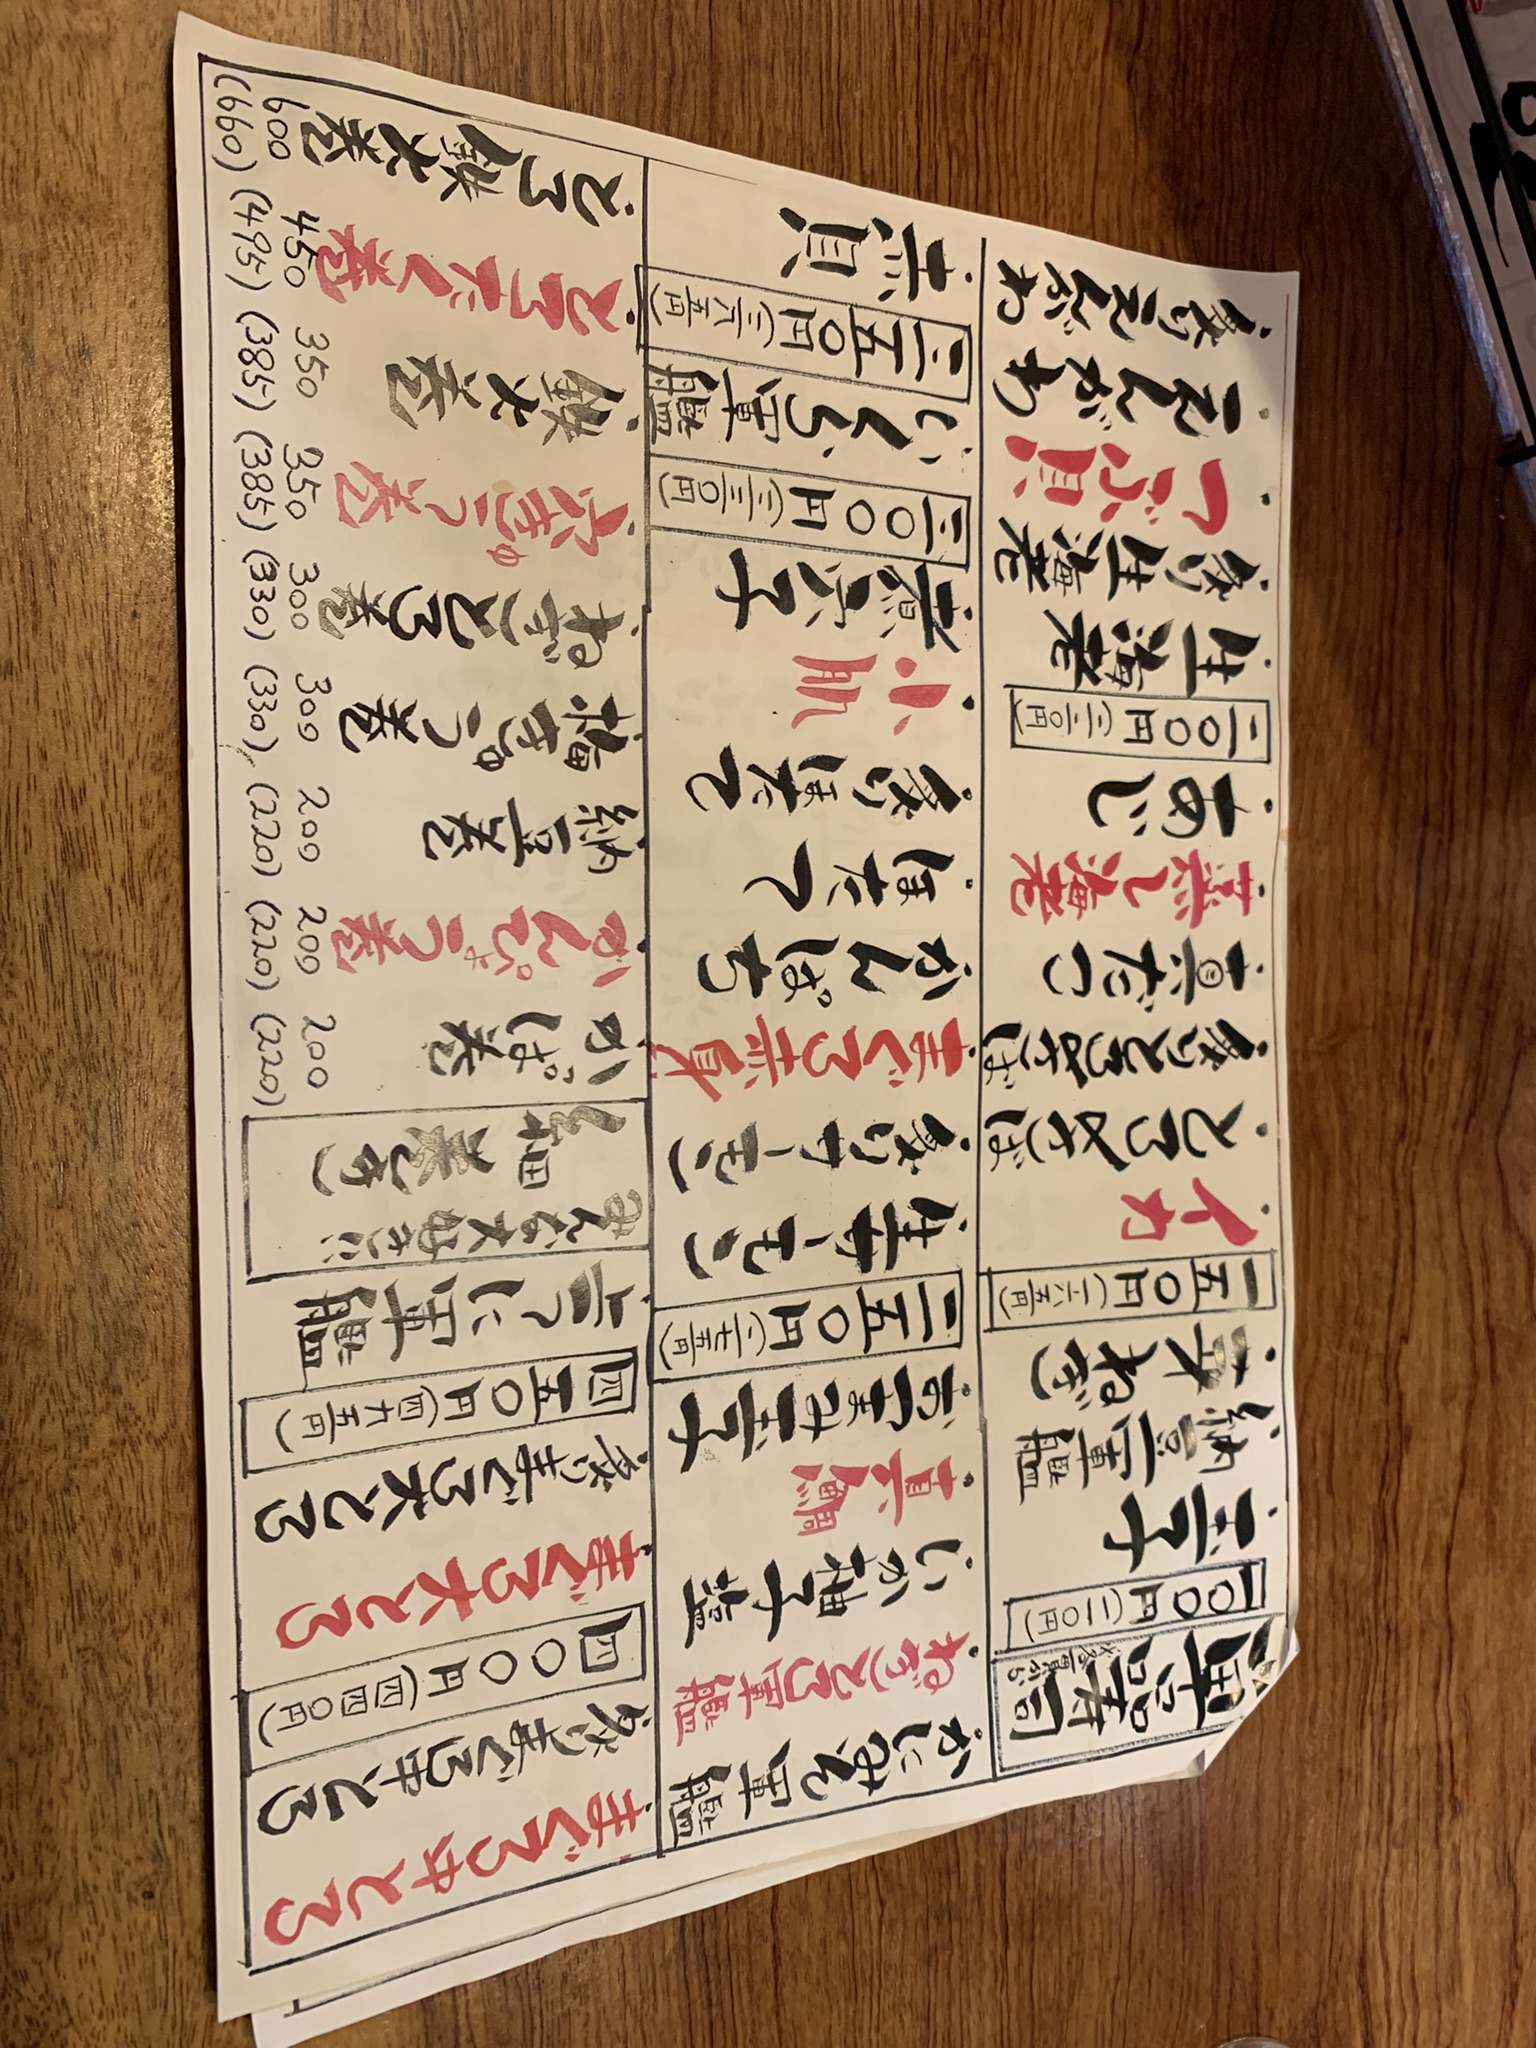 単品寿司
※各一貫から
一〇〇円(一一〇円)
・玉子
・納豆軍艦
・芽ねぎ
一五〇円(一六五円)
・イカ
・とろ〆さば
・炙りとろ〆さば
・真だこ
・蒸し海老
・あじ
二〇〇円(二二〇円)
・生海老
・炙り生海老
・つぶ貝
・えんがわ
・炙りえんがわ
・かにみそ軍艦
・ねぎとろ軍艦
・いか柚子塩
・真鯛
・おつまみ玉子
二五〇円(二七五円)
・生サーモン
・炙りサーモン
・まぐろ赤身
・かんぱち
・ほたて
・炙りほたて
・小肌
・煮穴子
三〇〇円(三三〇円)
・いくら軍艦
三五〇円(三八五円)
・赤貝
・まぐろ中とろ
・炙りまぐろ中とろ
四〇〇円(四四〇円)
・まぐろ大とろ
・炙りまぐろ大とろ
四五〇円(四九五円)
・上うに軍艦
みんな大好き!!
細巻き
・かっぱ巻 200 (220)
・かんぴょう巻 200 (220)
・納豆巻 200 (220)
・梅きゅう巻 300 (330)
・ねぎとろ巻 300 (330)
・穴きゅう巻 350 (385)
・鉄火巻 350 (385)
・とろたく巻 450 (495)
・とろ鉄火巻 600 (660)